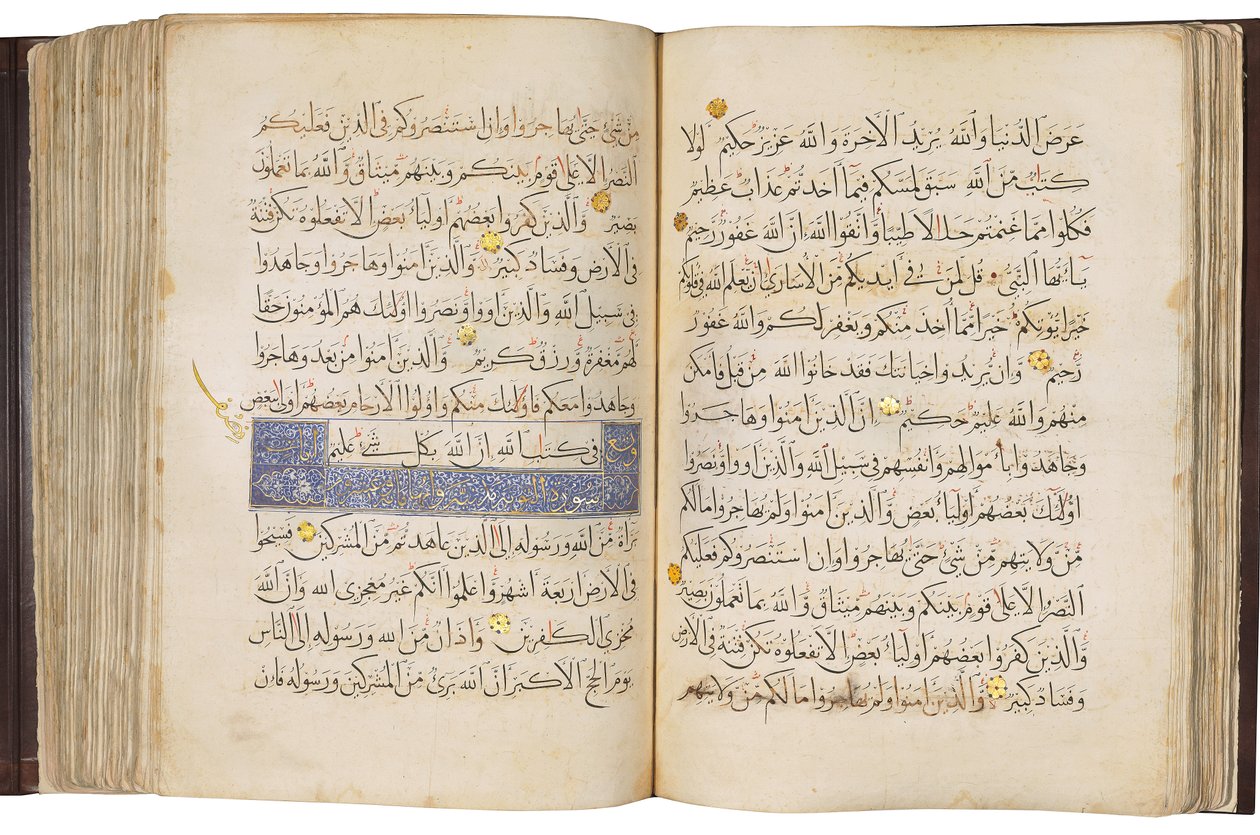 عرض الدنيا والله يريد الاخرة والله عزيز حكيم لولا
كتاب من الله سبق لمسكم فيما أخذتم عذاب عظيم
فكلوا مما غنمتم حلالا طيبا واتقوا الله إن الله غفور رحيم
يا أيها النبي قل لمن في أيديكم من الأسارى إن يعلم الله في قلوبكم
خيرا يؤتكم خيرا مما أخذ منكم ويغفر لكم والله غفور
رحيم وان يريدوا خيانتك فقد خانوا الله من قبل فأمكن
منهم والله عليم حكيم إن الذين آمنوا وهاجروا
وجاهدوا بأموالهم وأنفسهم في سبيل الله والذين آووا ونصروا
أولئك بعضهم أولياء بعض والذين آمنوا ولم يهاجروا ما لكم
من ولايتهم من شئ حتى يهاجروا وان استنصروكم فعليكم
النصر إلا على قوم بينكم وبينهم ميثاق والله بما تعملون بصير
والذين كفروا بعضهم أولياء بعض إلا تفعلوه تكن فتنة في الأرض
وفساد كبير والذين آمنوا ولم يهاجروا ما لكم من ولايتهم
من شئ حتى يهاجروا وإن استنصروكم في الدين فعليكم
النصر إلا على قوم بينكم وبينهم ميثاق والله بما تعملون
بصير والذين كفروا بعضهم أولياء بعض إلا تفعلوه تكن فتنة
في الأرض وفساد كبير والذين آمنوا وهاجروا وجاهدوا
في سبيل الله والذين آووا ونصروا أولئك هم المؤمنون حقا
لهم مغفرة ورزق كريم والذين آمنوا من بعد وهاجروا
وجاهدوا معكم فأولئك منكم وأولوا الأرحام بعضهم أولى ببعض
في كتاب الله إن الله بكل شئ عليم
سورة التوبة
براة من الله ورسوله إلى الذين عاهدتم من المشركين فسيحوا
في الأرض اربعة أشهر واعلموا أنكم غير معجزي الله وأن الله
مخزي الكافرين وأذان من الله ورسوله إلى الناس
يوم الحج الأكبر أن الله برئ من المشركين ورسوله فإن